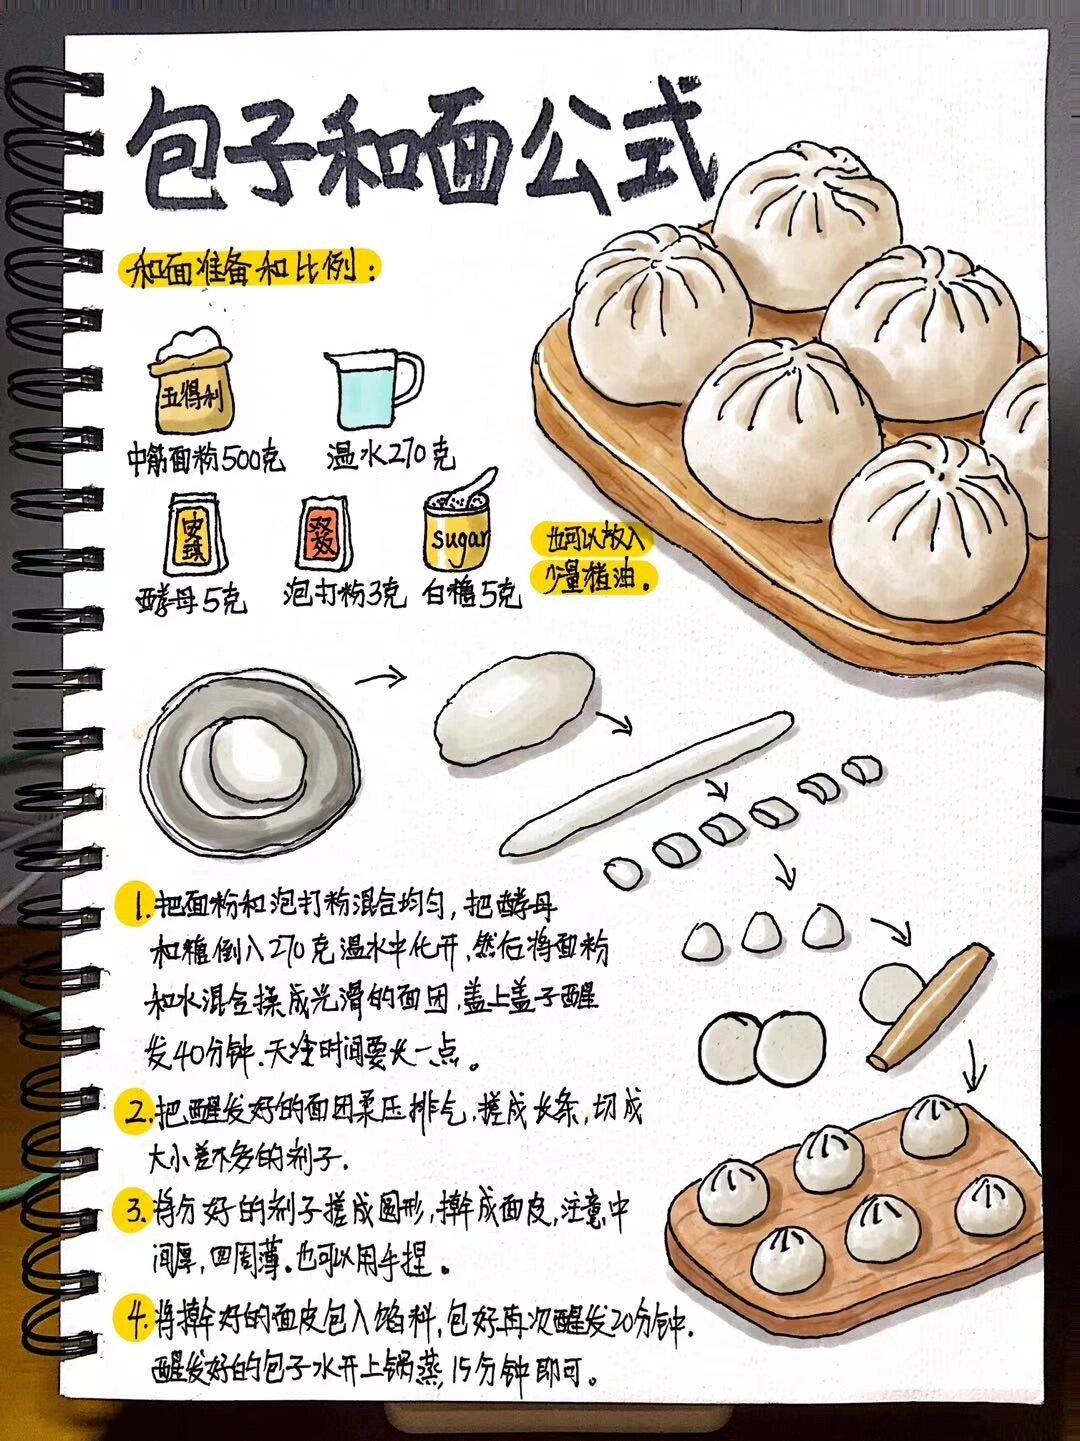 包子和面公式
和面准备和比例：
五得利
中筋面粉500克
温水270克
安琪
双效
sugar
酵母5克
泡打粉3克
白糖5克
也可以放入
少量猪油。
1.把面粉和泡打粉混合均匀，把酵母
和糖倒入270克温水中化开，然后将面粉
和水混合揉成光滑的面团，盖上盖子醒
发40分钟.天冷时间要长一点。
2.把醒发好的面团柔压排气，搓成长条，切成
大小差不多的剂子.
3.将分好的剂子搓成圆形，擀成面皮，注意中
间厚，四周薄。也可以用手捏。
4.将擀好的面皮包入馅料，包好再次醒发20分钟.
醒发好的包子水开上锅蒸，15分钟即可。